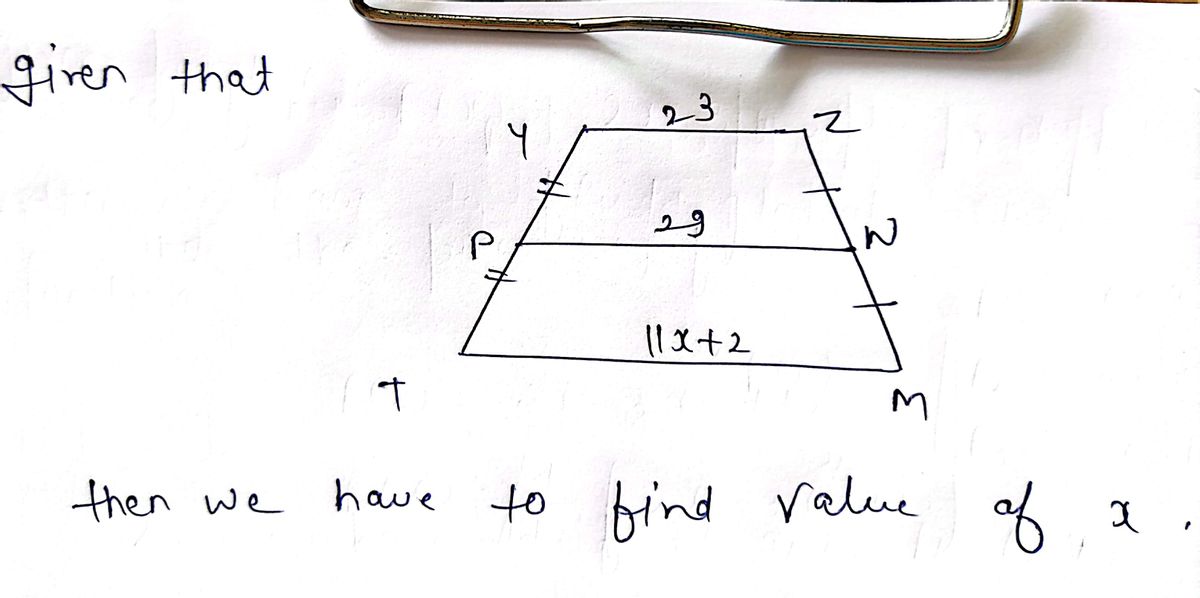 given that
23
Y Z
29
P N
11x+2
T M
then we have to find value of x.